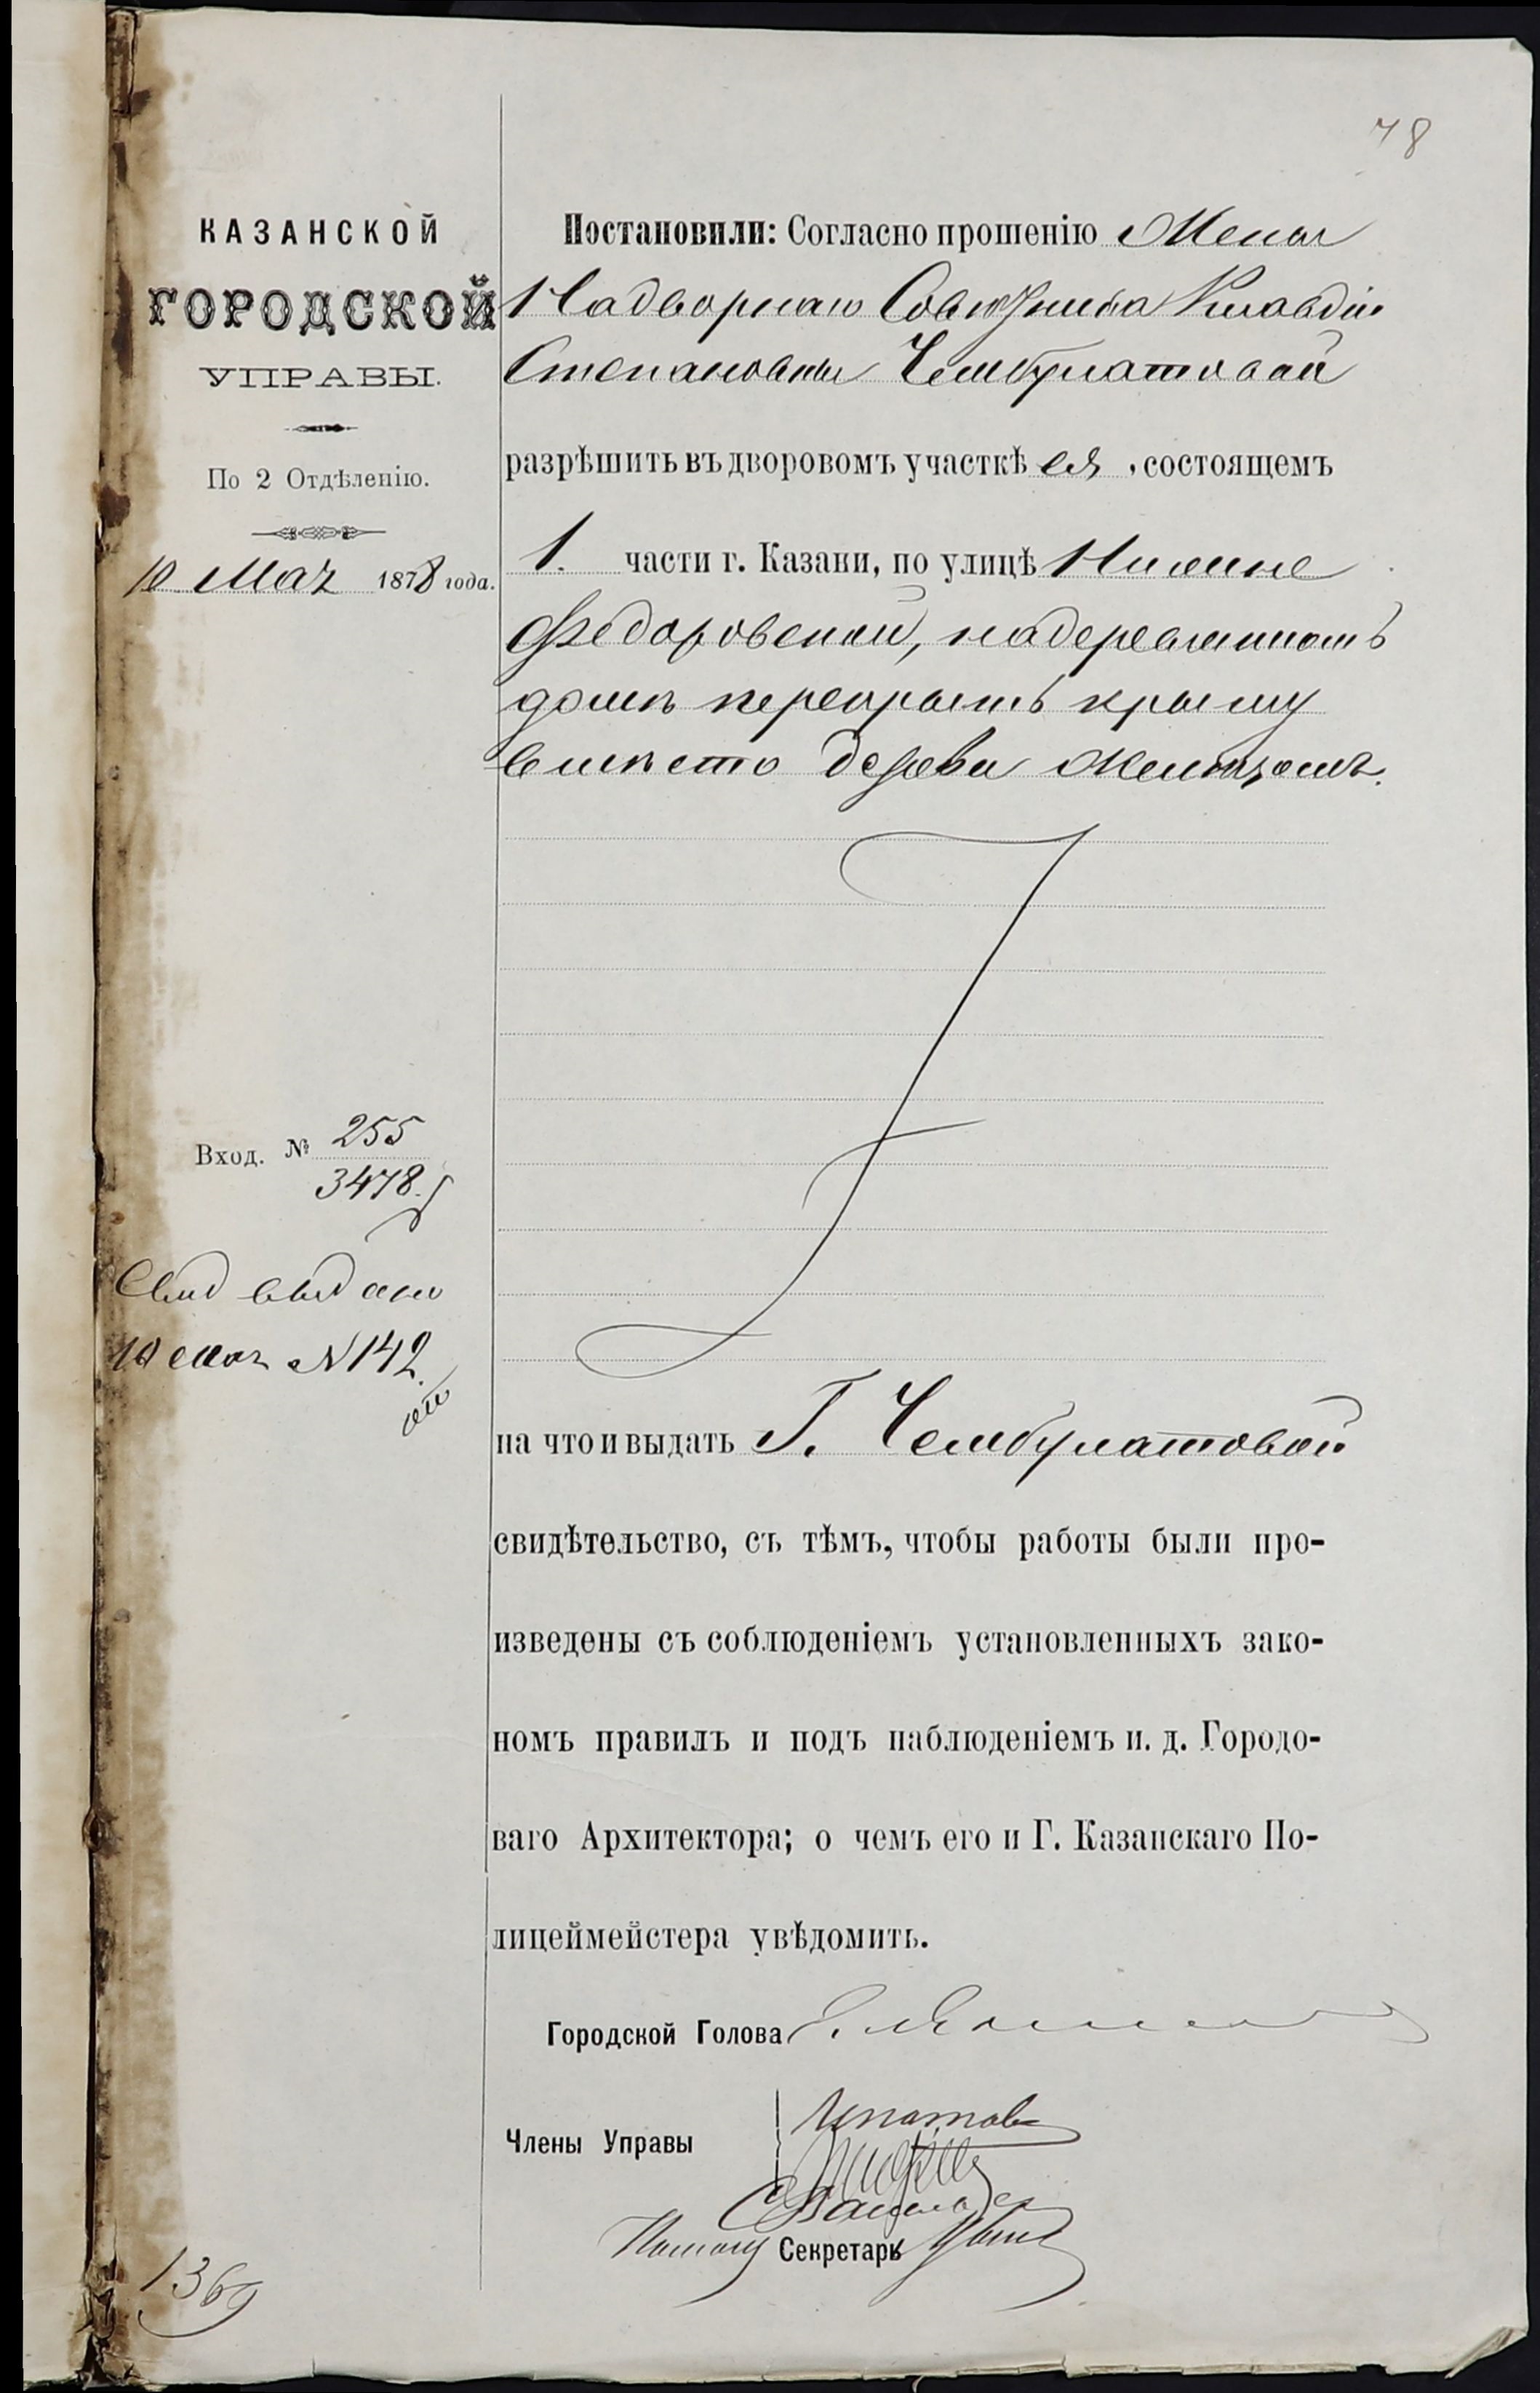 78
КАЗАНСКОЙ
ГОРОДСКОЙ
УПРАВЫ.
По 2 Отдѣленію.
10 Мая 1878 года.
Постановили: Согласно прошенію Жены
Надворнаго Совѣтника Клавдіи
Степановны Чембулатовой
разрѣшить въ дворовомъ участкѣ ея, состоящемъ
1. части г. Казани, по улицѣ Нижне
Федоровской, на деревянномъ
домѣ перекрыть крышу
вмѣсто дерева желѣзомъ.
Вход. № 255
3478.
Свид выдано
10 мая N 142.
на что и выдать Г. Чембулатовой
свидѣтельство, съ тѣмъ, чтобы работы были про-
изведены съ соблюденіемъ установленныхъ зако-
номъ правилъ и подъ наблюденіемъ и. д. Городо-
ваго Архитектора; о чемъ его и Г. Казанскаго По-
лицеймейстера увѣдомить.
Городской Голова
Члены Управы Ипатов
Секретарь
1369